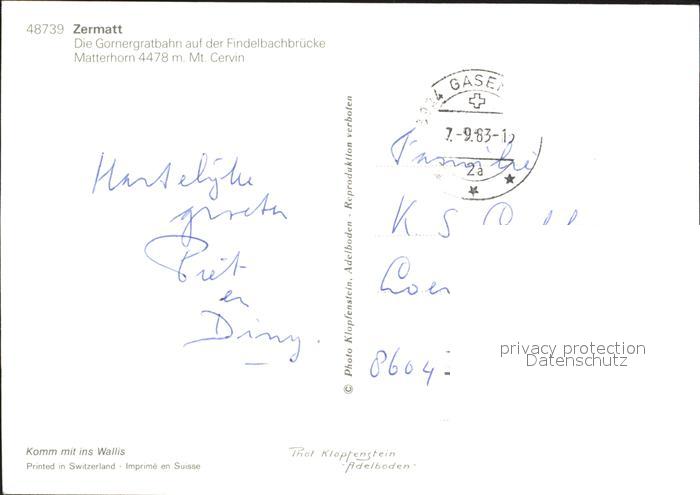 48739 Zermatt
Die Gornergratbahn auf der Findelbachbrücke
Matterhorn 4478 m. Mt. Cervin
Hartelijke
groeten
Piet
en
Diny.
© Photo Klopfenstein, Adelboden - Reproduktion verboten
GASEN
7.-9.83-12
2a
Familie
K S
8604
privacy protection
Datenschutz
Komm mit ins Wallis
Printed in Switzerland · Imprimé en Suisse
Phot Klopfenstein
Adelboden